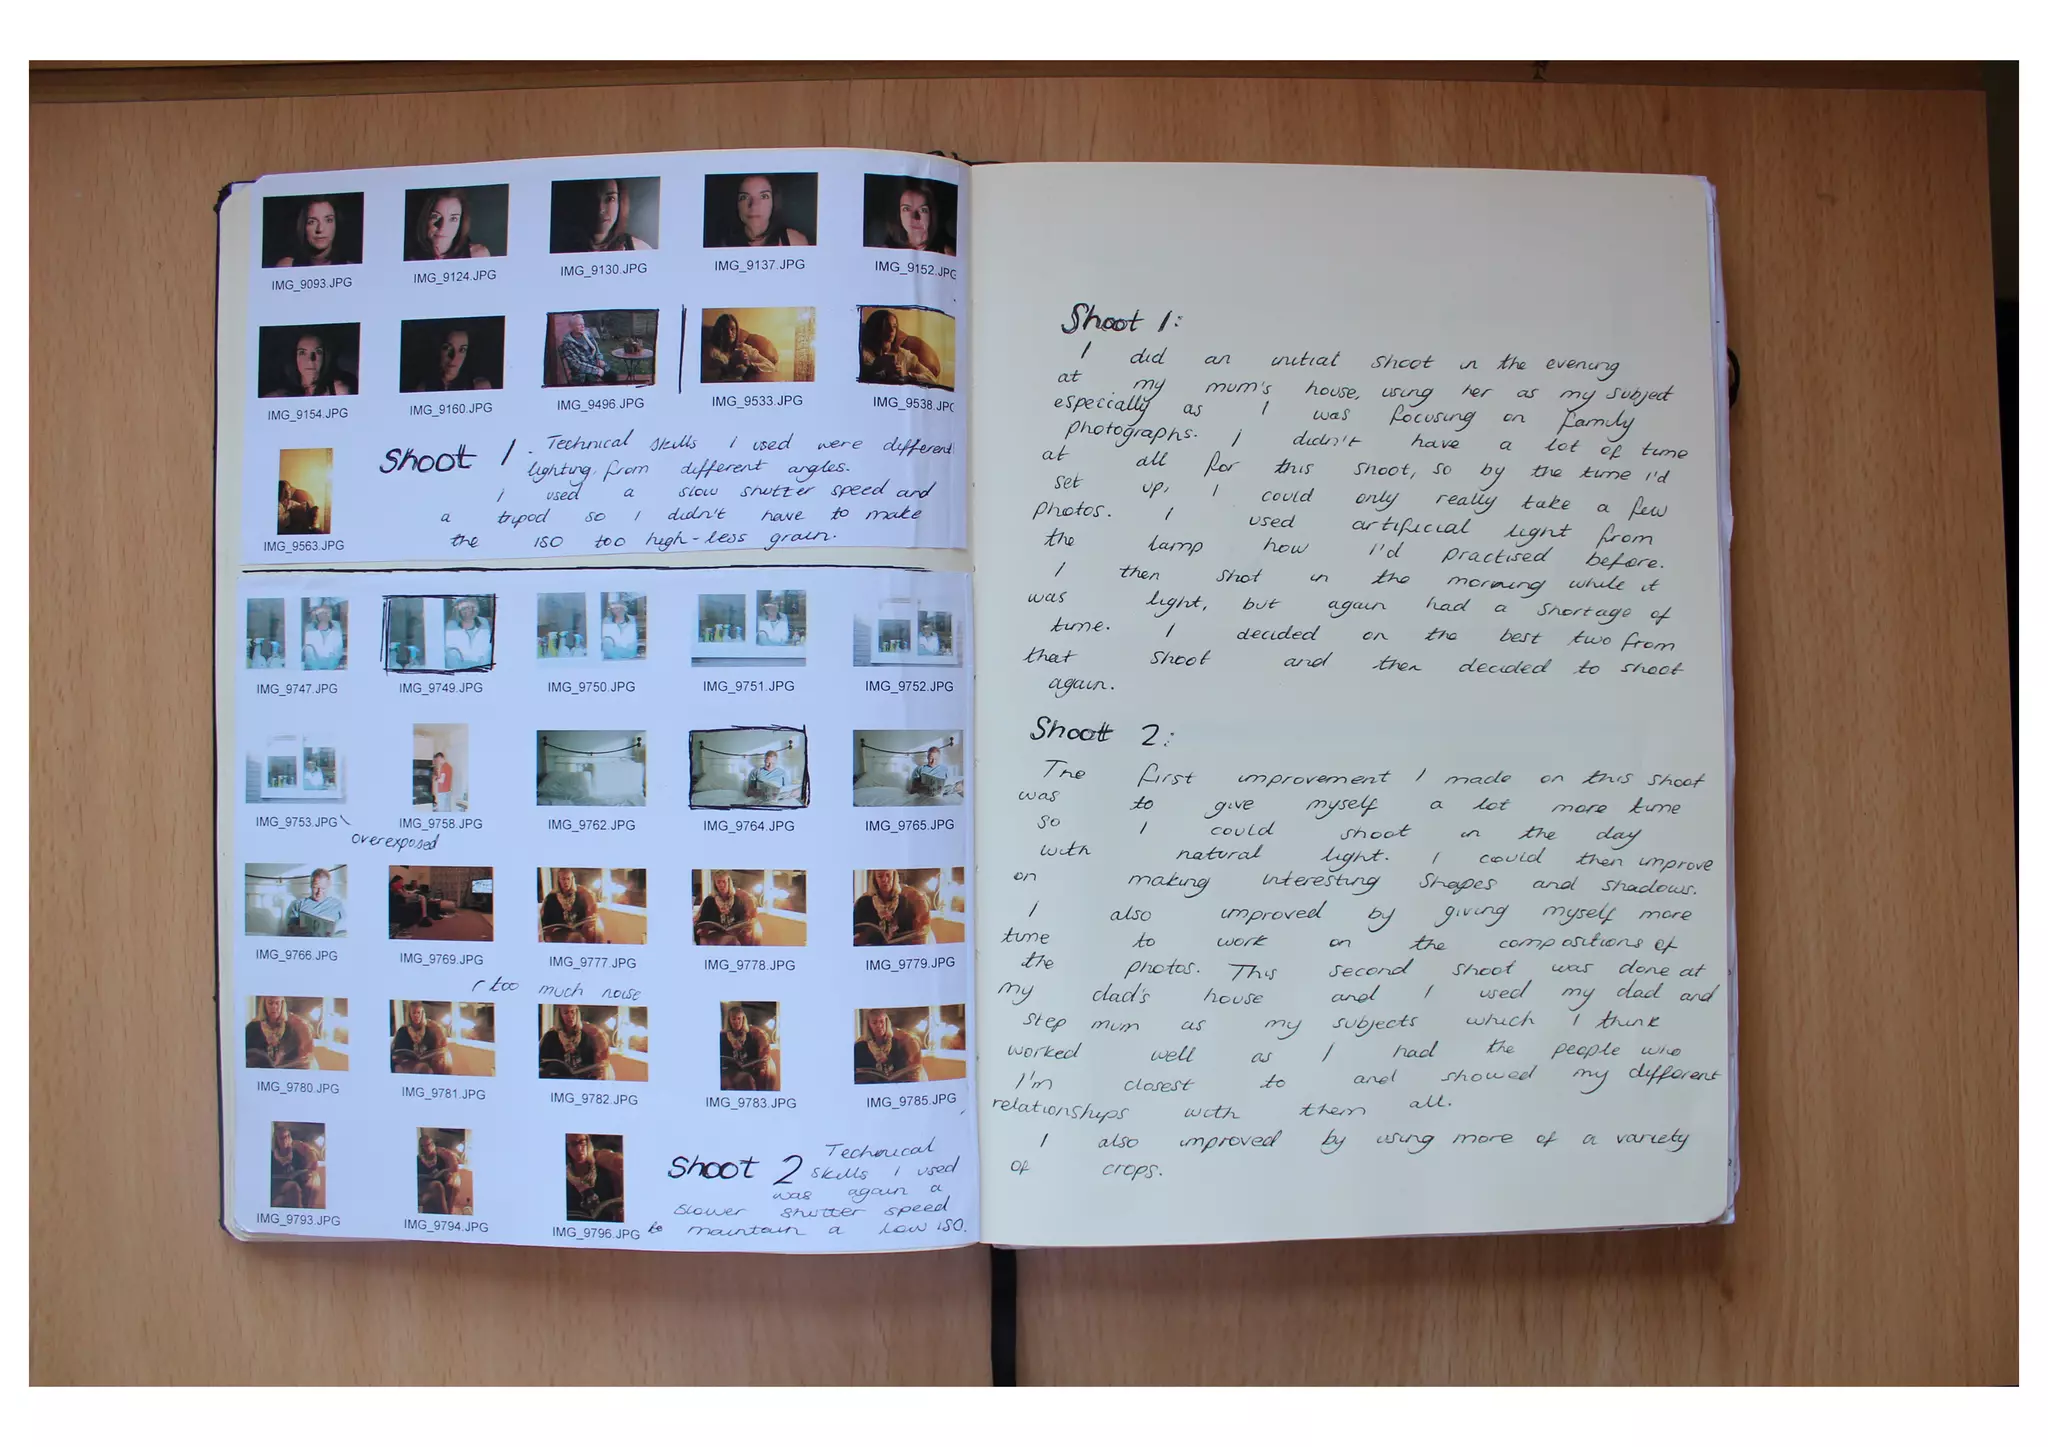 IMG_9093.JPG IMG_9124.JPG IMG_9130.JPG IMG_9137.JPG IMG_9152.JPG
IMG_9154.JPG IMG_9160.JPG IMG_9496.JPG IMG_9533.JPG IMG_9538.JPG
IMG_9563.JPG
Shoot 1. Technical skills I used were different
lighting from different angles.
I used a slow shutter speed and
a tripod so I didn't have to make
the ISO too high - less grain.
IMG_9747.JPG IMG_9749.JPG IMG_9750.JPG IMG_9751.JPG IMG_9752.JPG
IMG_9753.JPG IMG_9758.JPG IMG_9762.JPG IMG_9764.JPG IMG_9765.JPG
overexposed
IMG_9766.JPG IMG_9769.JPG IMG_9777.JPG IMG_9778.JPG IMG_9779.JPG
too much noise
IMG_9780.JPG IMG_9781.JPG IMG_9782.JPG IMG_9783.JPG IMG_9785.JPG
IMG_9793.JPG IMG_9794.JPG IMG_9796.JPG
Shoot 2 Technical
skills I used
was again a
slower shutter speed
to maintain a low ISO.
Shoot 1:
I did an initial shoot in the evening
at my mum's house, using her as my subject
especially as I was focusing on family
photographs. I didn't have a lot of time
at all for this shoot, so by the time I'd
set up, I could only really take a few
photos. I used artificial light from
the lamp how I'd practised before.
I then shot in the morning while it
was light, but again had a shortage of
time. I decided on the best two from
that shoot and then decided to shoot
again.
Shoot 2:
The first improvement I made on this shoot
was to give myself a lot more time
so I could shoot in the day
with natural light. I could then improve
on making interesting shapes and shadows.
I also improved by giving myself more
time to work on the compositions of
the photos. This second shoot was done at
my dad's house and I used my dad and
step mum as my subjects which I think
worked well as I had the people who
I'm closest to and showed my different
relationships with them all.
I also improved by using more of a variety
of crops.